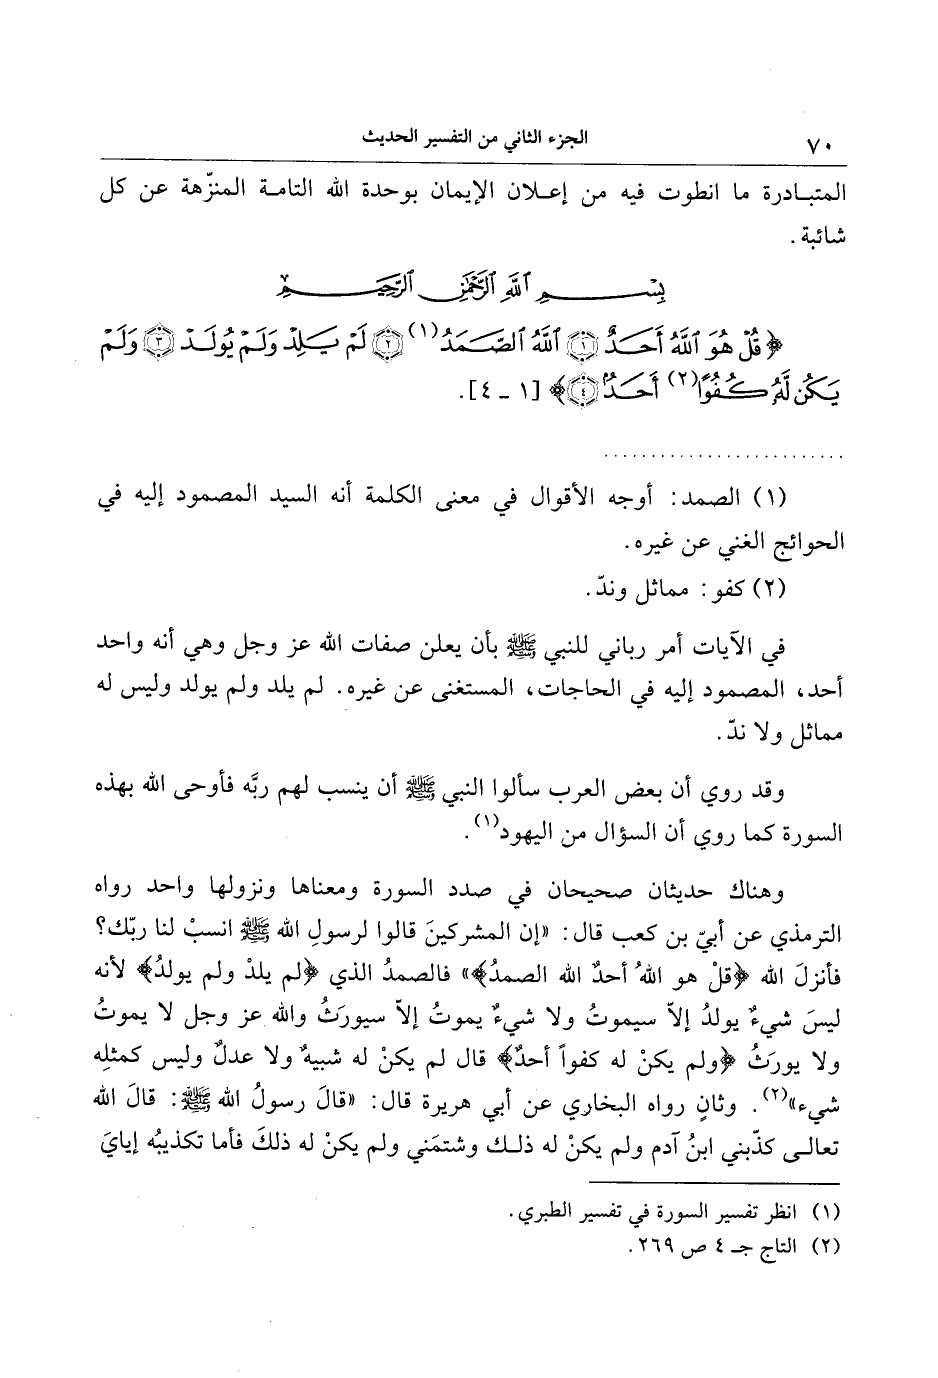 ٧٠
الجزء الثاني من التفسير الحديث
المتبادرة ما انطوت فيه من إعلان الإيمان بوحدة الله التامة المنزّهة عن كل
شائبة.
بِسْمِ ٱللَّهِ ٱلرَّحْمَٰنِ ٱلرَّحِيمِ
﴿قُلْ هُوَ ٱللَّهُ أَحَدٌ ١ ٱللَّهُ ٱلصَّمَدُ(١) ٢ لَمْ يَلِدْ وَلَمْ يُولَدْ ٣ وَلَمْ
يَكُن لَّهُ كُفُوًا(٢) أَحَدٌ ٤﴾ [١ - ٤].
........................
(١) الصمد: أوجه الأقوال في معنى الكلمة أنه السيد المصمود إليه في
الحوائج الغني عن غيره.
(٢) كفو: مماثل وندّ.
في الآيات أمر رباني للنبي ﷺ بأن يعلن صفات الله عز وجل وهي أنه واحد
أحد، المصمود إليه في الحاجات، المستغنى عن غيره. لم يلد ولم يولد وليس له
مماثل ولا ندّ.
وقد روي أن بعض العرب سألوا النبي ﷺ أن ينسب لهم ربَّه فأوحى الله بهذه
السورة كما روي أن السؤال من اليهود(١).
وهناك حديثان صحيحان في صدد السورة ومعناها ونزولها واحد رواه
الترمذي عن أبيّ بن كعب قال: «إن المشركينَ قالوا لرسولِ الله ﷺ انسبْ لنا ربّك؟
فأنزلَ الله ﴿قلْ هو اللهُ أحدٌ الله الصمدُ﴾» فالصمدُ الذي ﴿لم يلدْ ولم يولدُ﴾ لأنه
ليسَ شيءٌ يولدُ إلاّ سيموتُ ولا شيءٌ يموتُ إلاّ سيورَثُ والله عز وجل لا يموتُ
ولا يورَثُ ﴿ولم يكنْ له كفواً أحدٌ﴾ قال لم يكنْ له شبيهٌ ولا عدلٌ وليس كمثلِه
شيء»(٢). وثانٍ رواه البخاري عن أبي هريرة قال: «قالَ رسولُ الله ﷺ: قالَ الله
تعالى كذّبني ابنُ آدم ولم يكنْ له ذلك وشتمَني ولم يكنْ له ذلكَ فأما تكذيبُه إيايَ
(١) انظر تفسير السورة في تفسير الطبري.
(٢) التاج جـ ٤ ص ٢٦٩.